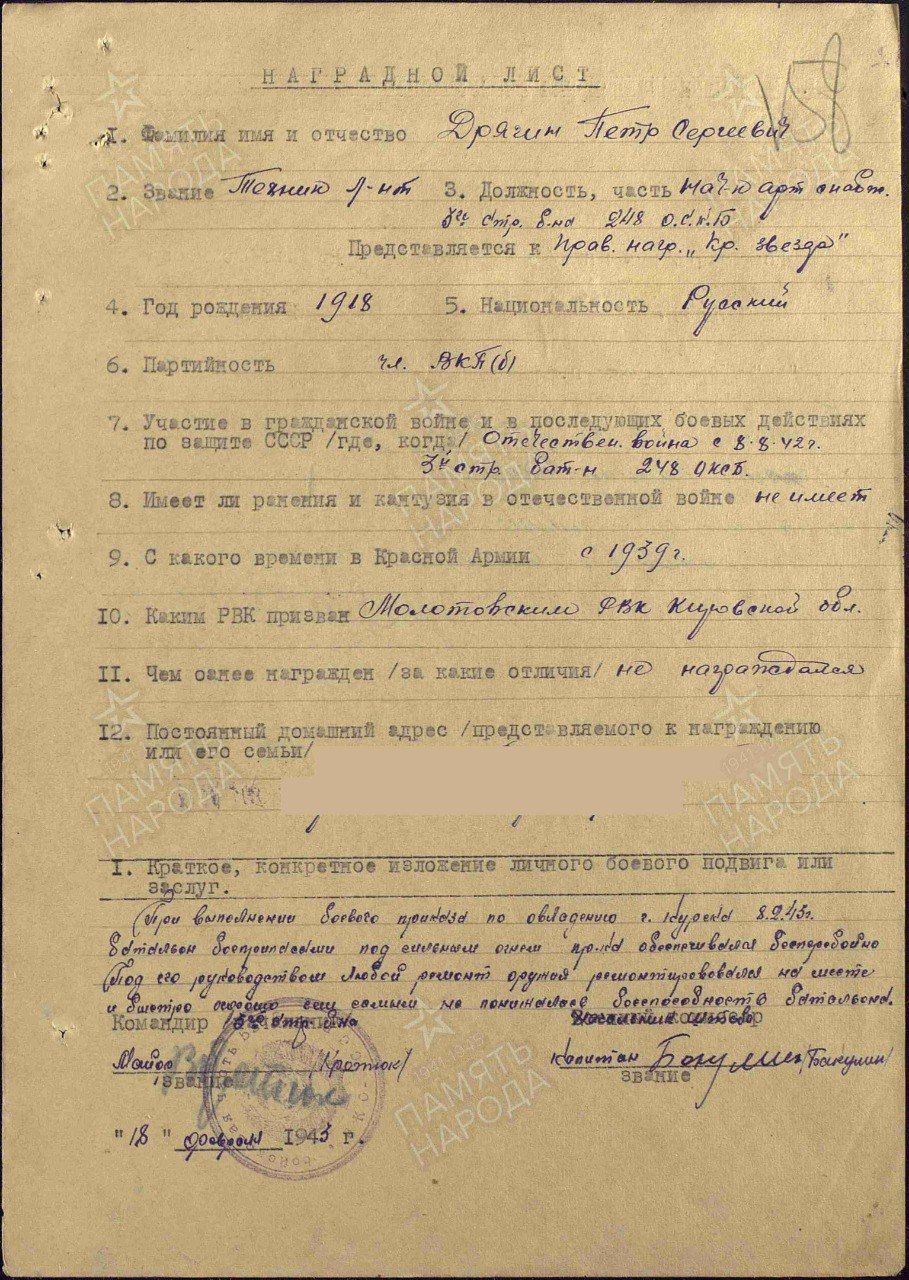 158
НАГРАДНОЙ ЛИСТ
I. Фамилия имя и отчество Дрягин Петр Сергеевич
2. Звание Техник л-нт 3. Должность, часть Нач-к арт снабж.
3й стр. б-на 248 О.С.К.Б
Представляется к Прав. нагр. „Кр. звезда"
4. Год рождения 1918 5. Национальность Русский
6. Партийность чл. ВКП(б)
7. Участие в гражданской войне и в последующих боевых действиях
по защите СССР /где, когда/ Отечествен. война с 8.8.42 г.
3й стр. бат-н 248 ОКСБ.
8. Имеет ли ранения и кантузия в отечественной войне не имеет
9. С какого времени в Красной Армии с 1939 г.
10. Каким РВК призван Молотовским РВК Кировской обл.
II. Чем ранее награжден /за какие отличия/ не награждался
12. Постоянный домашний адрес /представляемого к награждению
или его семьи/
I. Краткое, конкретное изложение личного боевого подвига или
заслуг.
При выполнении боевого приказа по овладению г. Курска 8.2.43г.
батальон боеприпасами под сильным огнем обеспечивался бесперебойно
Под его руководством любой ремонт оружия ремонтировался на месте
и быстро боеспособность батальона.
Командир 3го стр. б-на
Майор /Кротюк/ капитан Бакулин /Бакулин/
звание звание
"18" февраля 1943 г.
ПАМЯТЬ НАРОДА
ПАМЯТЬ НАРОДА
ПАМЯТЬ НАРОДА
ПАМЯТЬ НАРОДА
ПАМЯТЬ НАРОДА
ПАМЯТЬ НАРОДА